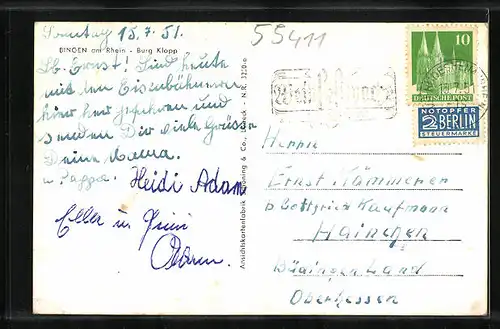 Sonntag 15.7.51.
BINGEN am Rhein - Burg Klopp
Lb. Ernst! Sind heute
mit den Eisenbähnern
hier her gefahren und
senden Dir viele Grüsse
Deine Mama
u. Pappa. Heidi Adam
Adam
55411
Ansichtskartenfabrik & Co., N.R. 3220/6
10
DEUTSCHE POST
NOTOPFER
2 BERLIN
STEUERMARKE
Herrn
Ernst Kämmerer
b Gottfried Kaufmann
Hainchen
Büdingen Land
Oberhessen